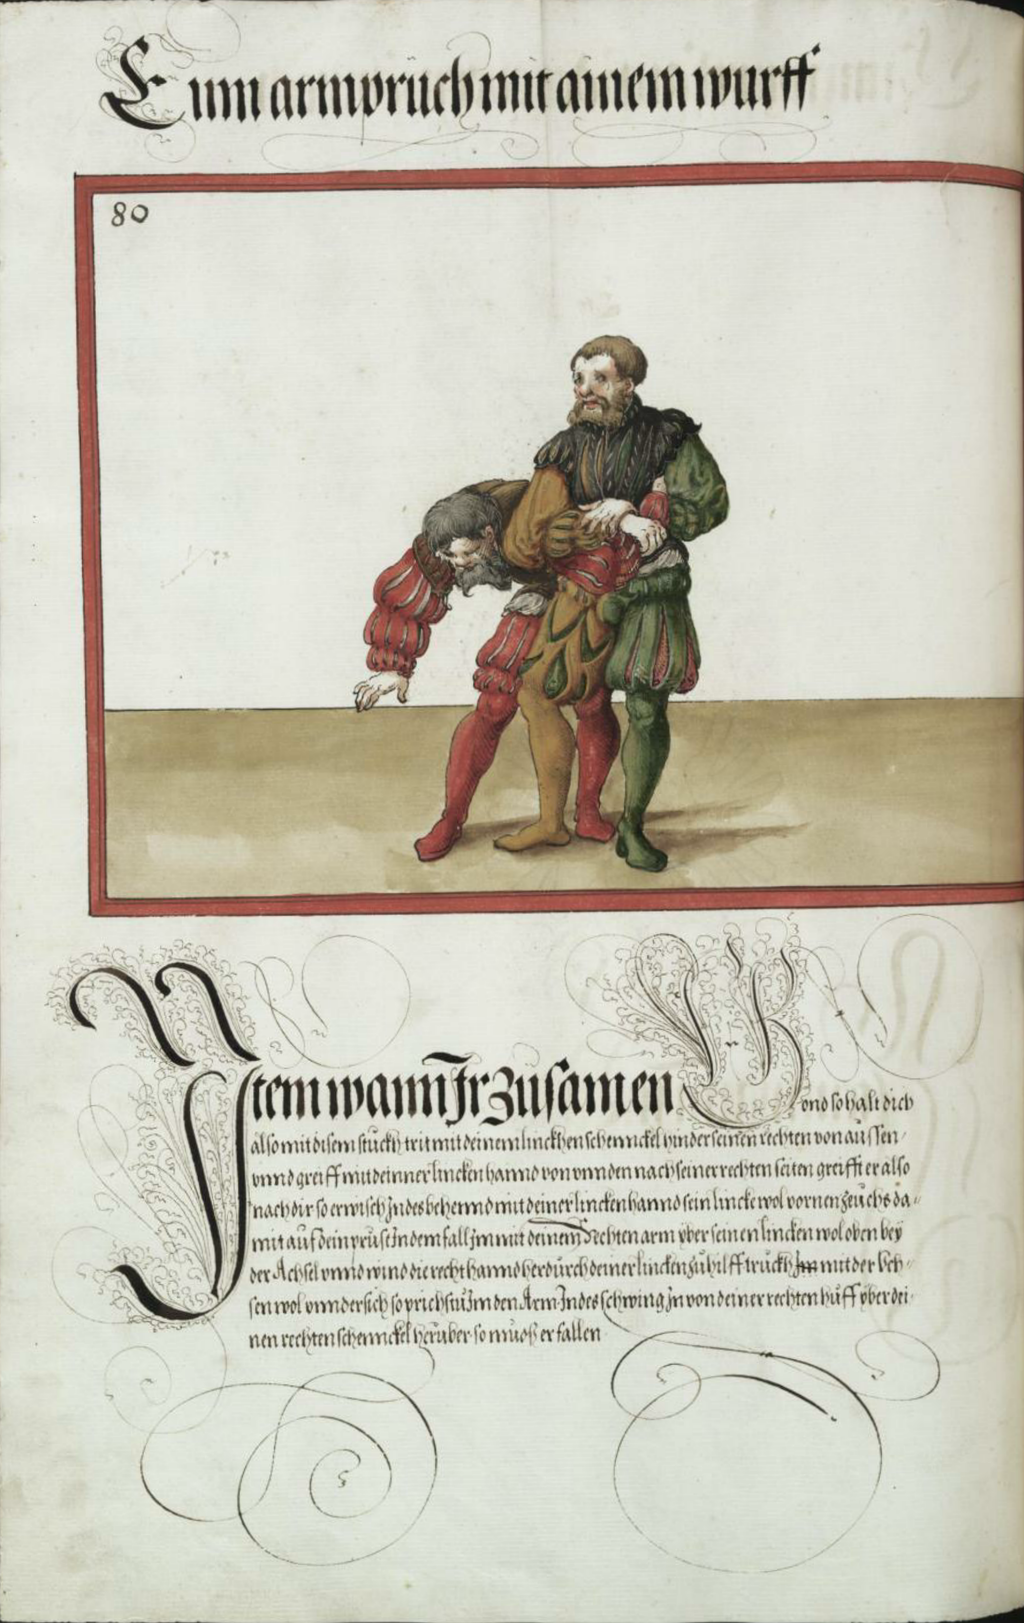 Einn armprüch mit ainem wurff
80
Item wann Ir zusamen Gond so halt dich
also mit disem stuckh trit mit deinem linckhen schennckel hinder seinen rechten von aussen
vnnd greiff mit deinner lincken hannd von vnnden nach seiner rechten seiten greifft er also
nach dir so erwisch Indes behennd mit deiner lincken hannd sein lincke wol vornen zeuchs da=
mit auf dein prust Indem fall Im mit deinem Rechten arm yber seinen lincken wol oben bey
der Achsel vnnd wind die recht hannd herdurch deiner lincken zu hilff truckh Im mit der Vch=
sen wol vnndersich so prichstu Im den Arm Indes schwing In von deiner rechten huff yber dei=
nen rechten schennckel herüber so muoß er fallen